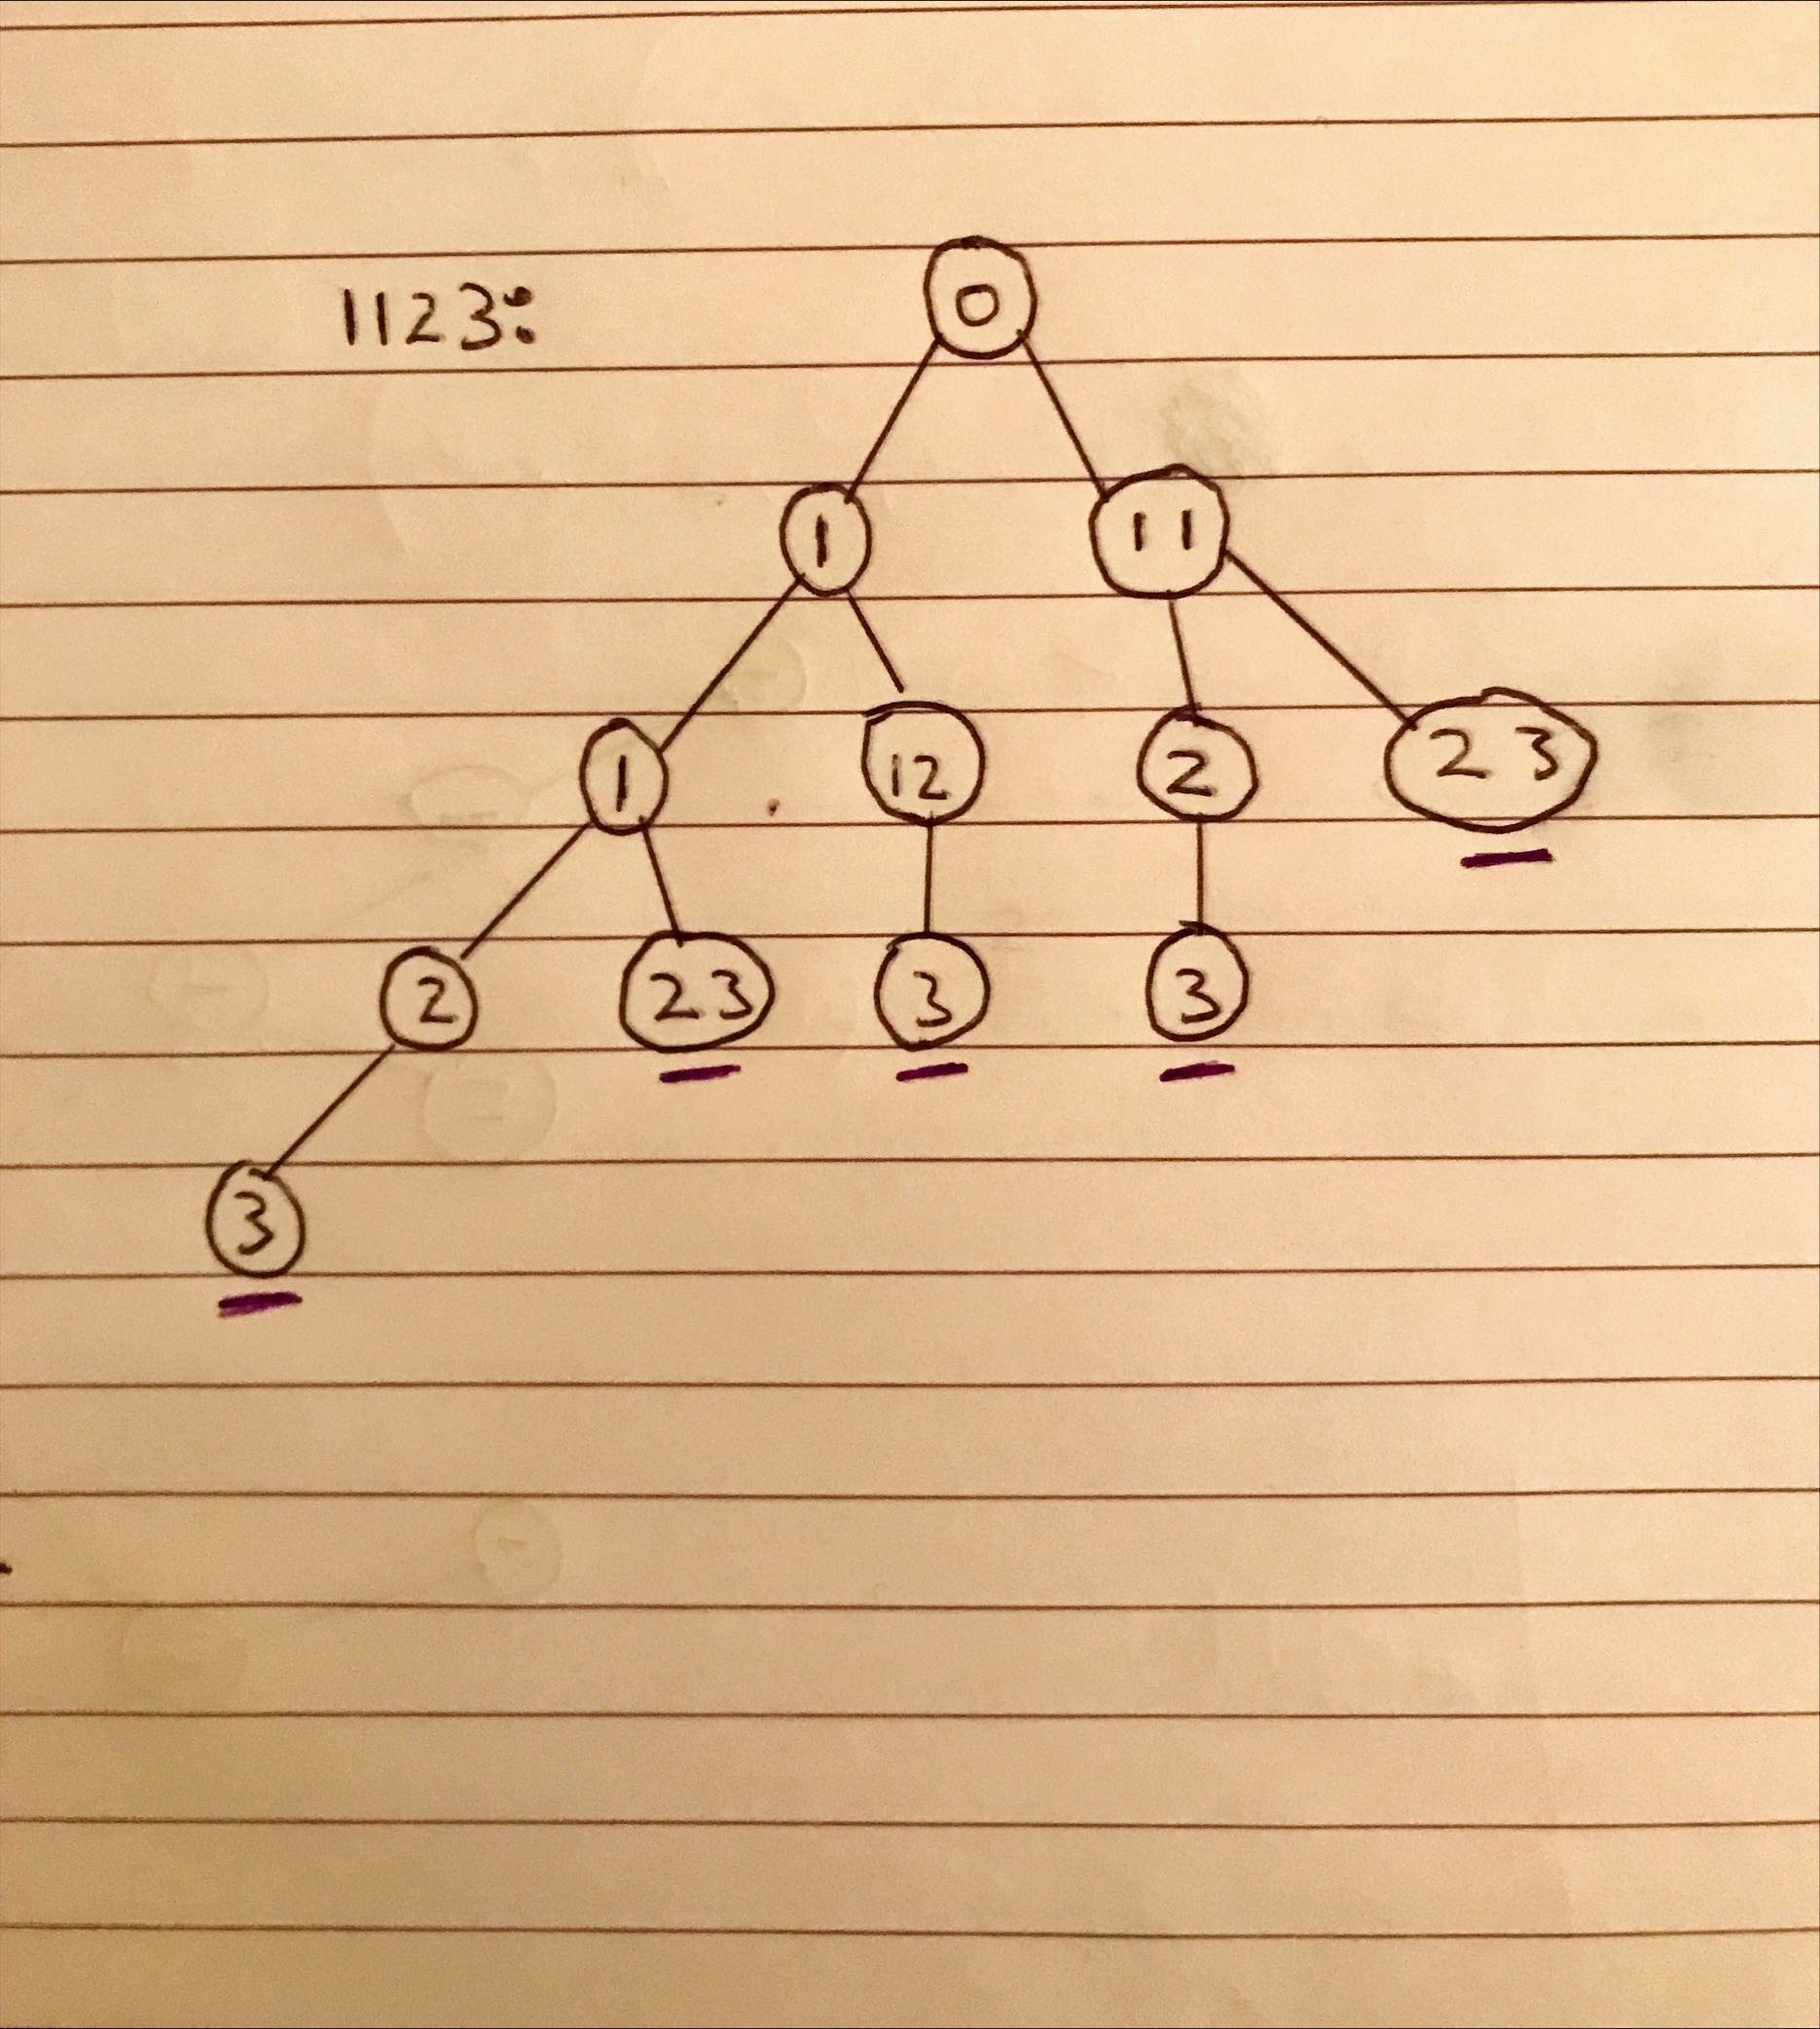 1123:
0
1 11
1 12 2 23
2 23 3 3
3